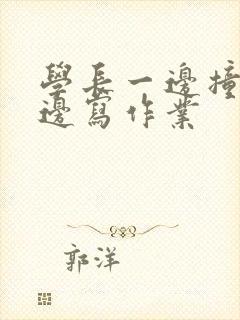 學長一邊撞
邊寫作業
郭洋